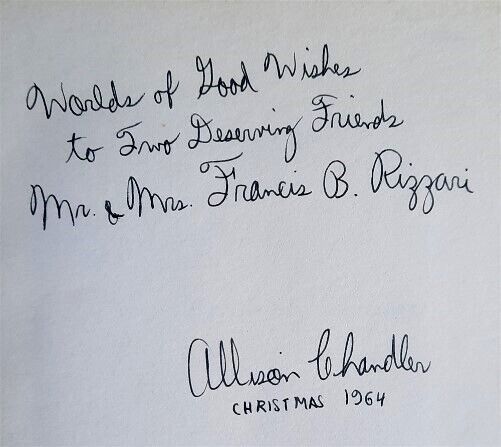 Worlds of Good Wishes
to Two Deserving Friends
Mr. & Mrs. Francis B. Rizzari
Allison Chandler
CHRISTMAS 1964